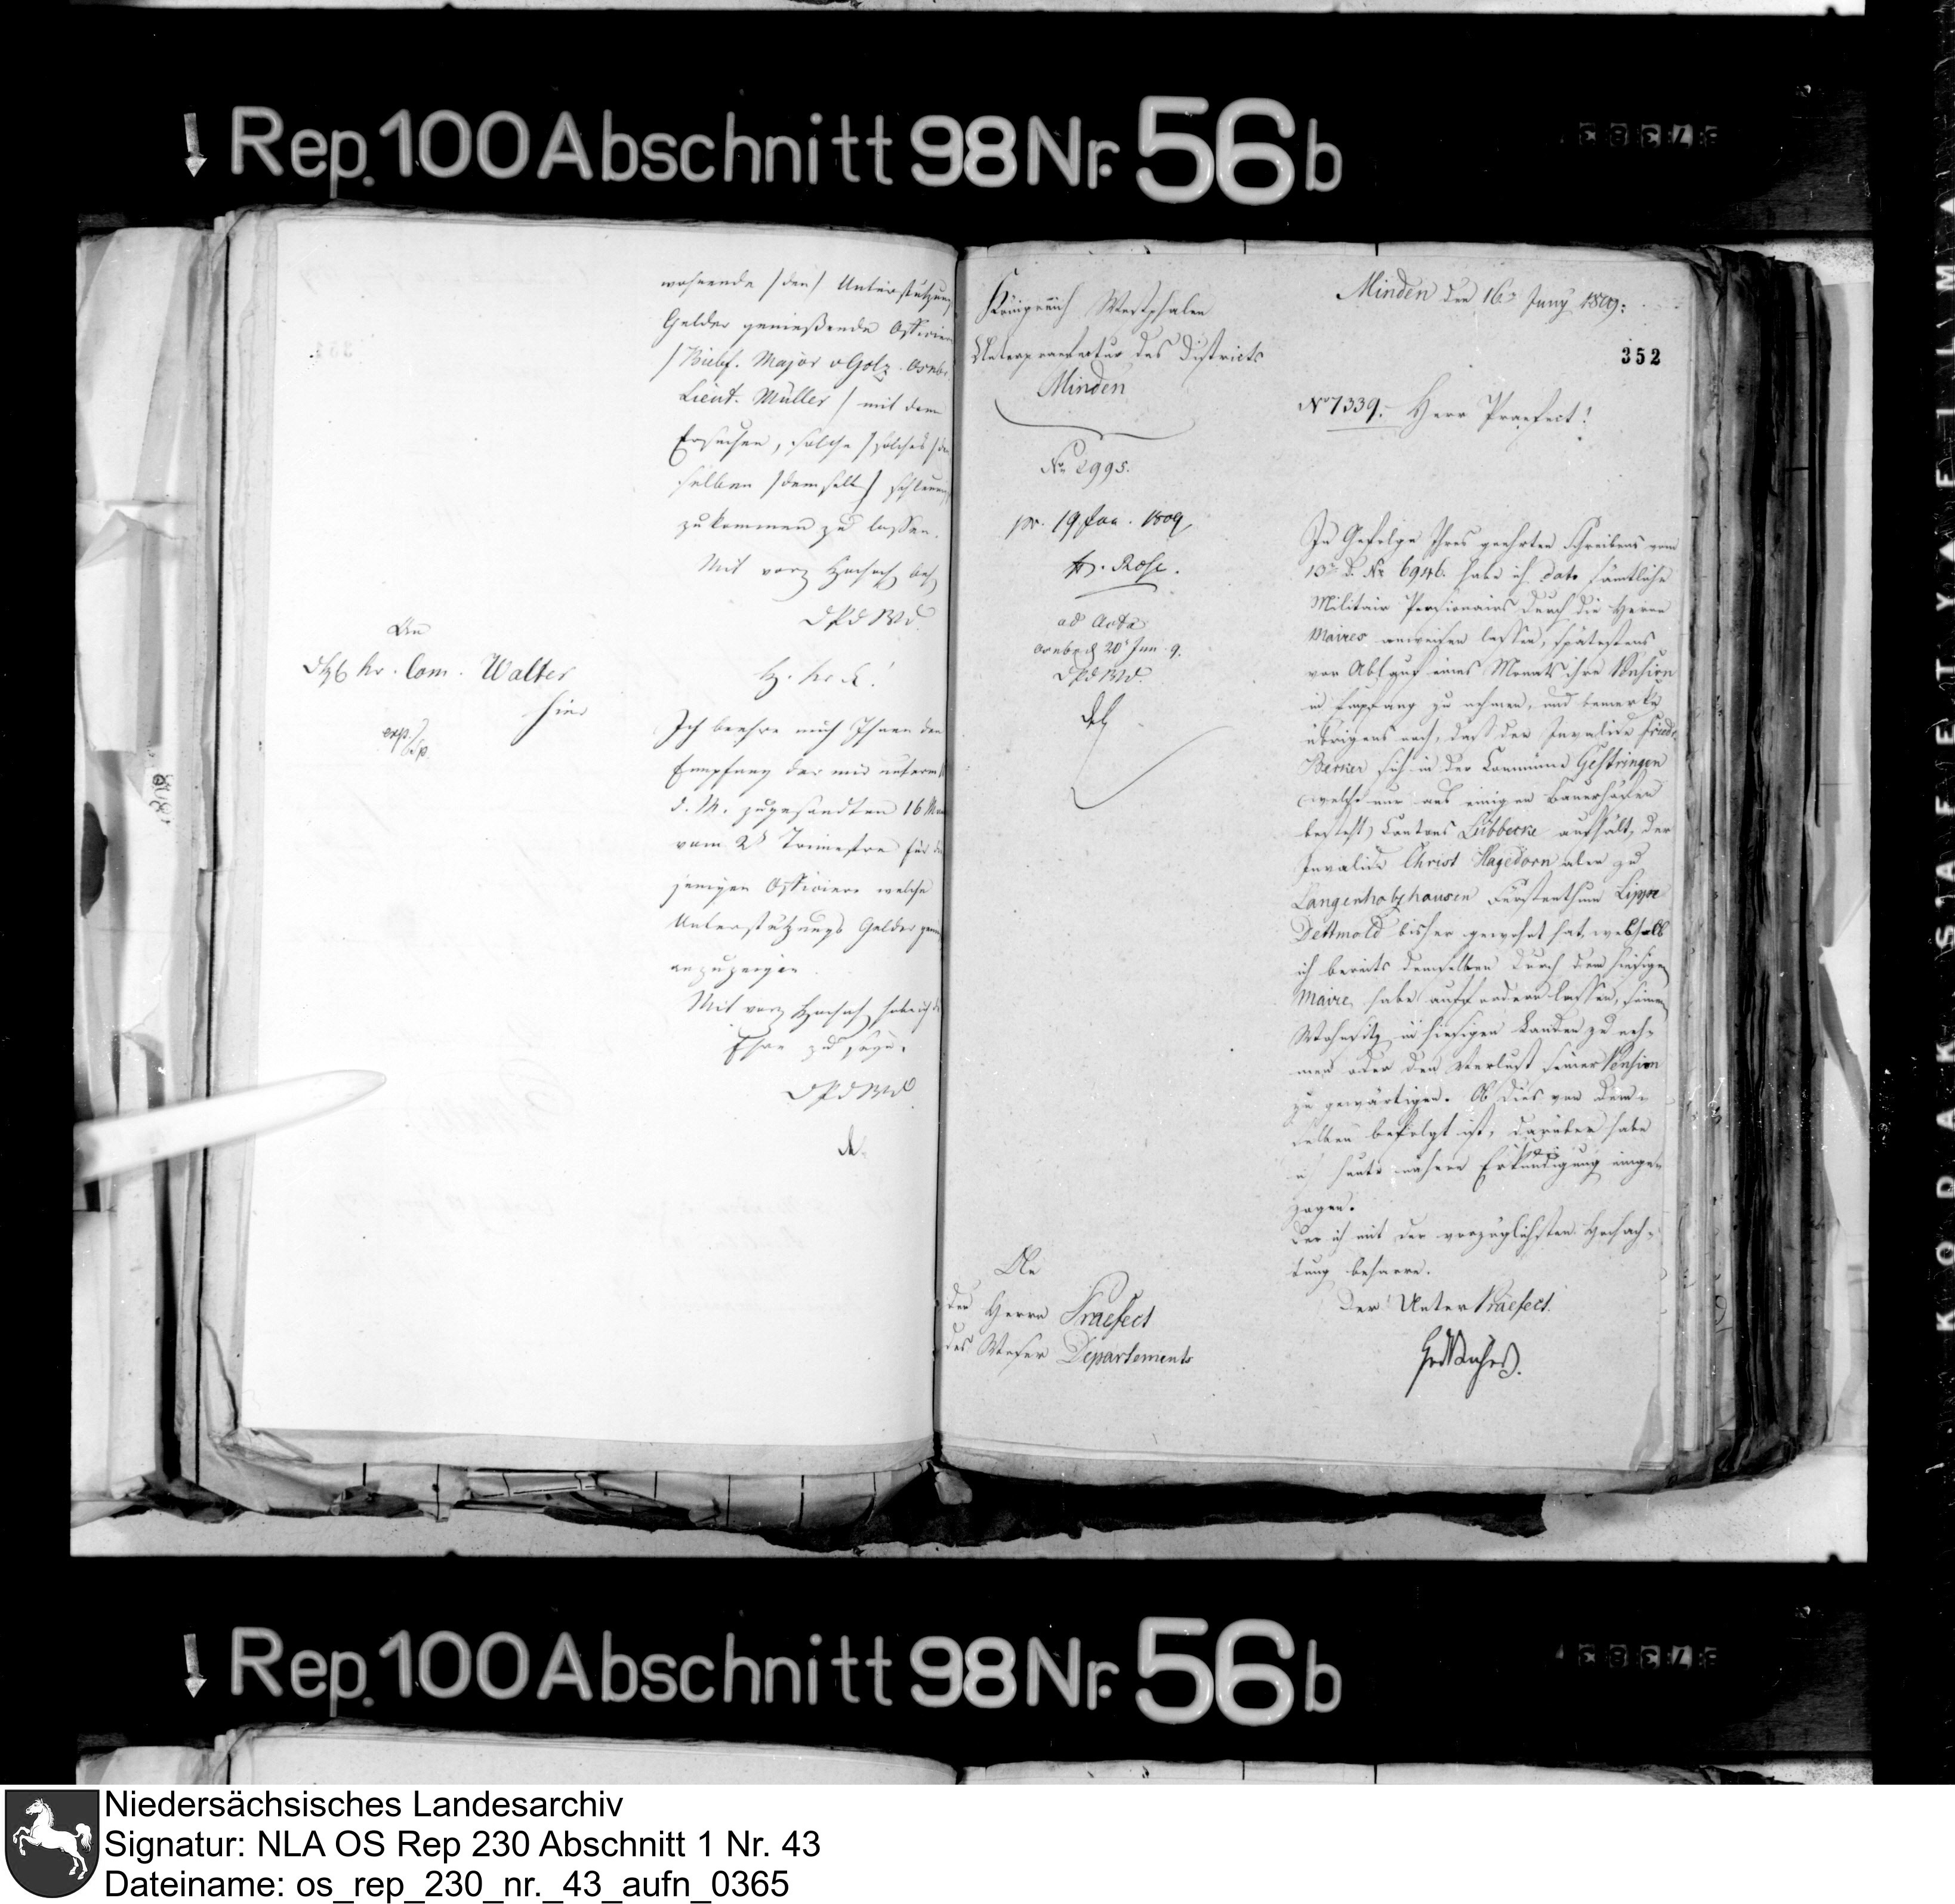 Rep. 100 Abschnitt 98 Nr. 56b
wohnende /den/ Unterstützungs
Gelder genießende Officiere
/Bielef. Major v Golz. Osnbr.
Lieut. Müller/ mit dem
Ersuchen, solche /solches/ den
selben /demselb/ schleunig
zukommen zu lassen.
Mit vorz Hochach beh
DPdWD.
An
Kr. Com. Walter
hier
exp.
H. Kr. C.!
Ich beehre mich Ihnen den
Empfang der mir unterm
d. M. zugesandten 16
vom 2t Trimestre für die
jenigen Officiere welche
Unterstützungs Gelder
anzuzeigen.
Mit vorz Hochach habe ich die
Ehre zu seyn.
DPdWD
Königreich Westphalen
Unterpraefectur des Districts
Minden
No 2995.
pr. 19 Jun. 1809
H. Rose.
ad Acta
Osnbr d 20t Jun. 9.
DPdWD.
An
den Herrn Praefect
des Weser Departements
Minden den 16ten Juny 1809.
352
No 7339. Herr Praefect!
In Gefolge Ihres geehrten Schreibens vom
10t d. No 6946. habe ich dato sämtliche
Militair Pensionairs durch die Herrn
Maires anweisen lassen, spätestens
vor Ablauf eines Monats ihre Pension
in Empfang zu nehmen, und bemerke
übrigens noch, daß der Invalide Friedr.
Becker sich in der Commune Gestringen
(welche nur aus einigen Bauerhöfen
besteht) Cantons Lübbecke aufhält, der
Invalide Christ Hagedorn aber zu
Langenholzhausen Fürstenthum Lippe
Dettmold bisher gewohnt hat, weshalb
ich bereits demselben durch den hiesigen
Maire habe auffordern lassen, seinen
Wohnsitz in hiesigen Landen zu neh-
men oder den Verlust seiner Pension
zu gewärtigen. Ob dies von dem-
selben befolgt ist, darüber habe
ich heute nähere Erkundigung einge-
zogen.
Der ich mit der vorzüglichsten Hochach-
tung beharre.
Der Unter Praefect.
Rep. 100 Abschnitt 98 Nr. 56b
Niedersächsisches Landesarchiv
Signatur: NLA OS Rep 230 Abschnitt 1 Nr. 43
Dateiname: os_rep_230_nr._43_aufn_0365